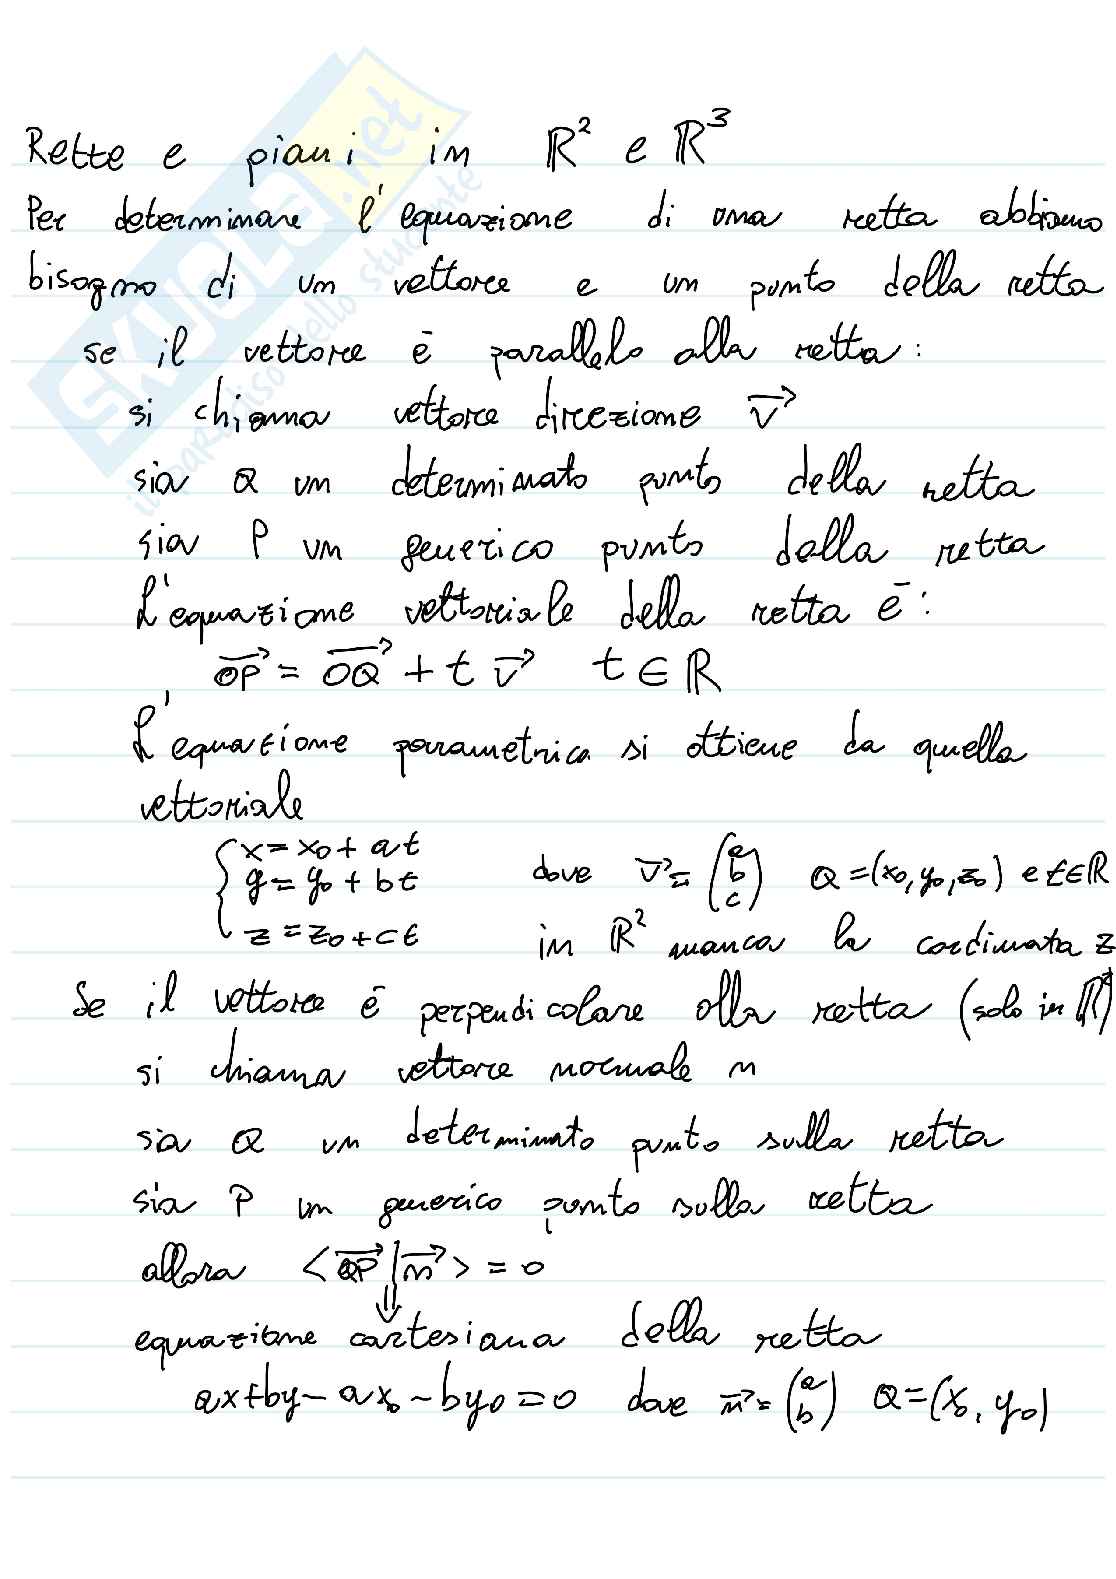 Rette e piani in ℝ² e ℝ³
Per determinare l'equazione di una retta abbiamo
bisogno di un vettore e un punto della retta
se il vettore è parallelo alla retta:
si chiama vettore direzione v⃗
sia Q un determinato punto della retta
sia P un generico punto della retta
L'equazione vettoriale della retta è:
OP⃗ = OQ⃗ + t v⃗ t ∈ ℝ
L'equazione parametrica si ottiene da quella
vettoriale
{ x = x₀ + at
y = y₀ + bt dove v⃗ = (a b c) Q = (x₀, y₀, z₀) e t∈ℝ
z = z₀ + ct in ℝ² manca la cordinata z
Se il vettore è perpendicolare alla retta (solo in ℝ²)
si chiama vettore normale n
sia Q un determinato punto sulla retta
sia P un generico punto sulla retta
allora <QP⃗ | n⃗> = 0
⇓
equazione cartesiana della retta
ax+by-ax₀-by₀=0 dove n⃗ = (a b) Q=(x₀, y₀)
SKUOLA.net
il paradiso dello studente